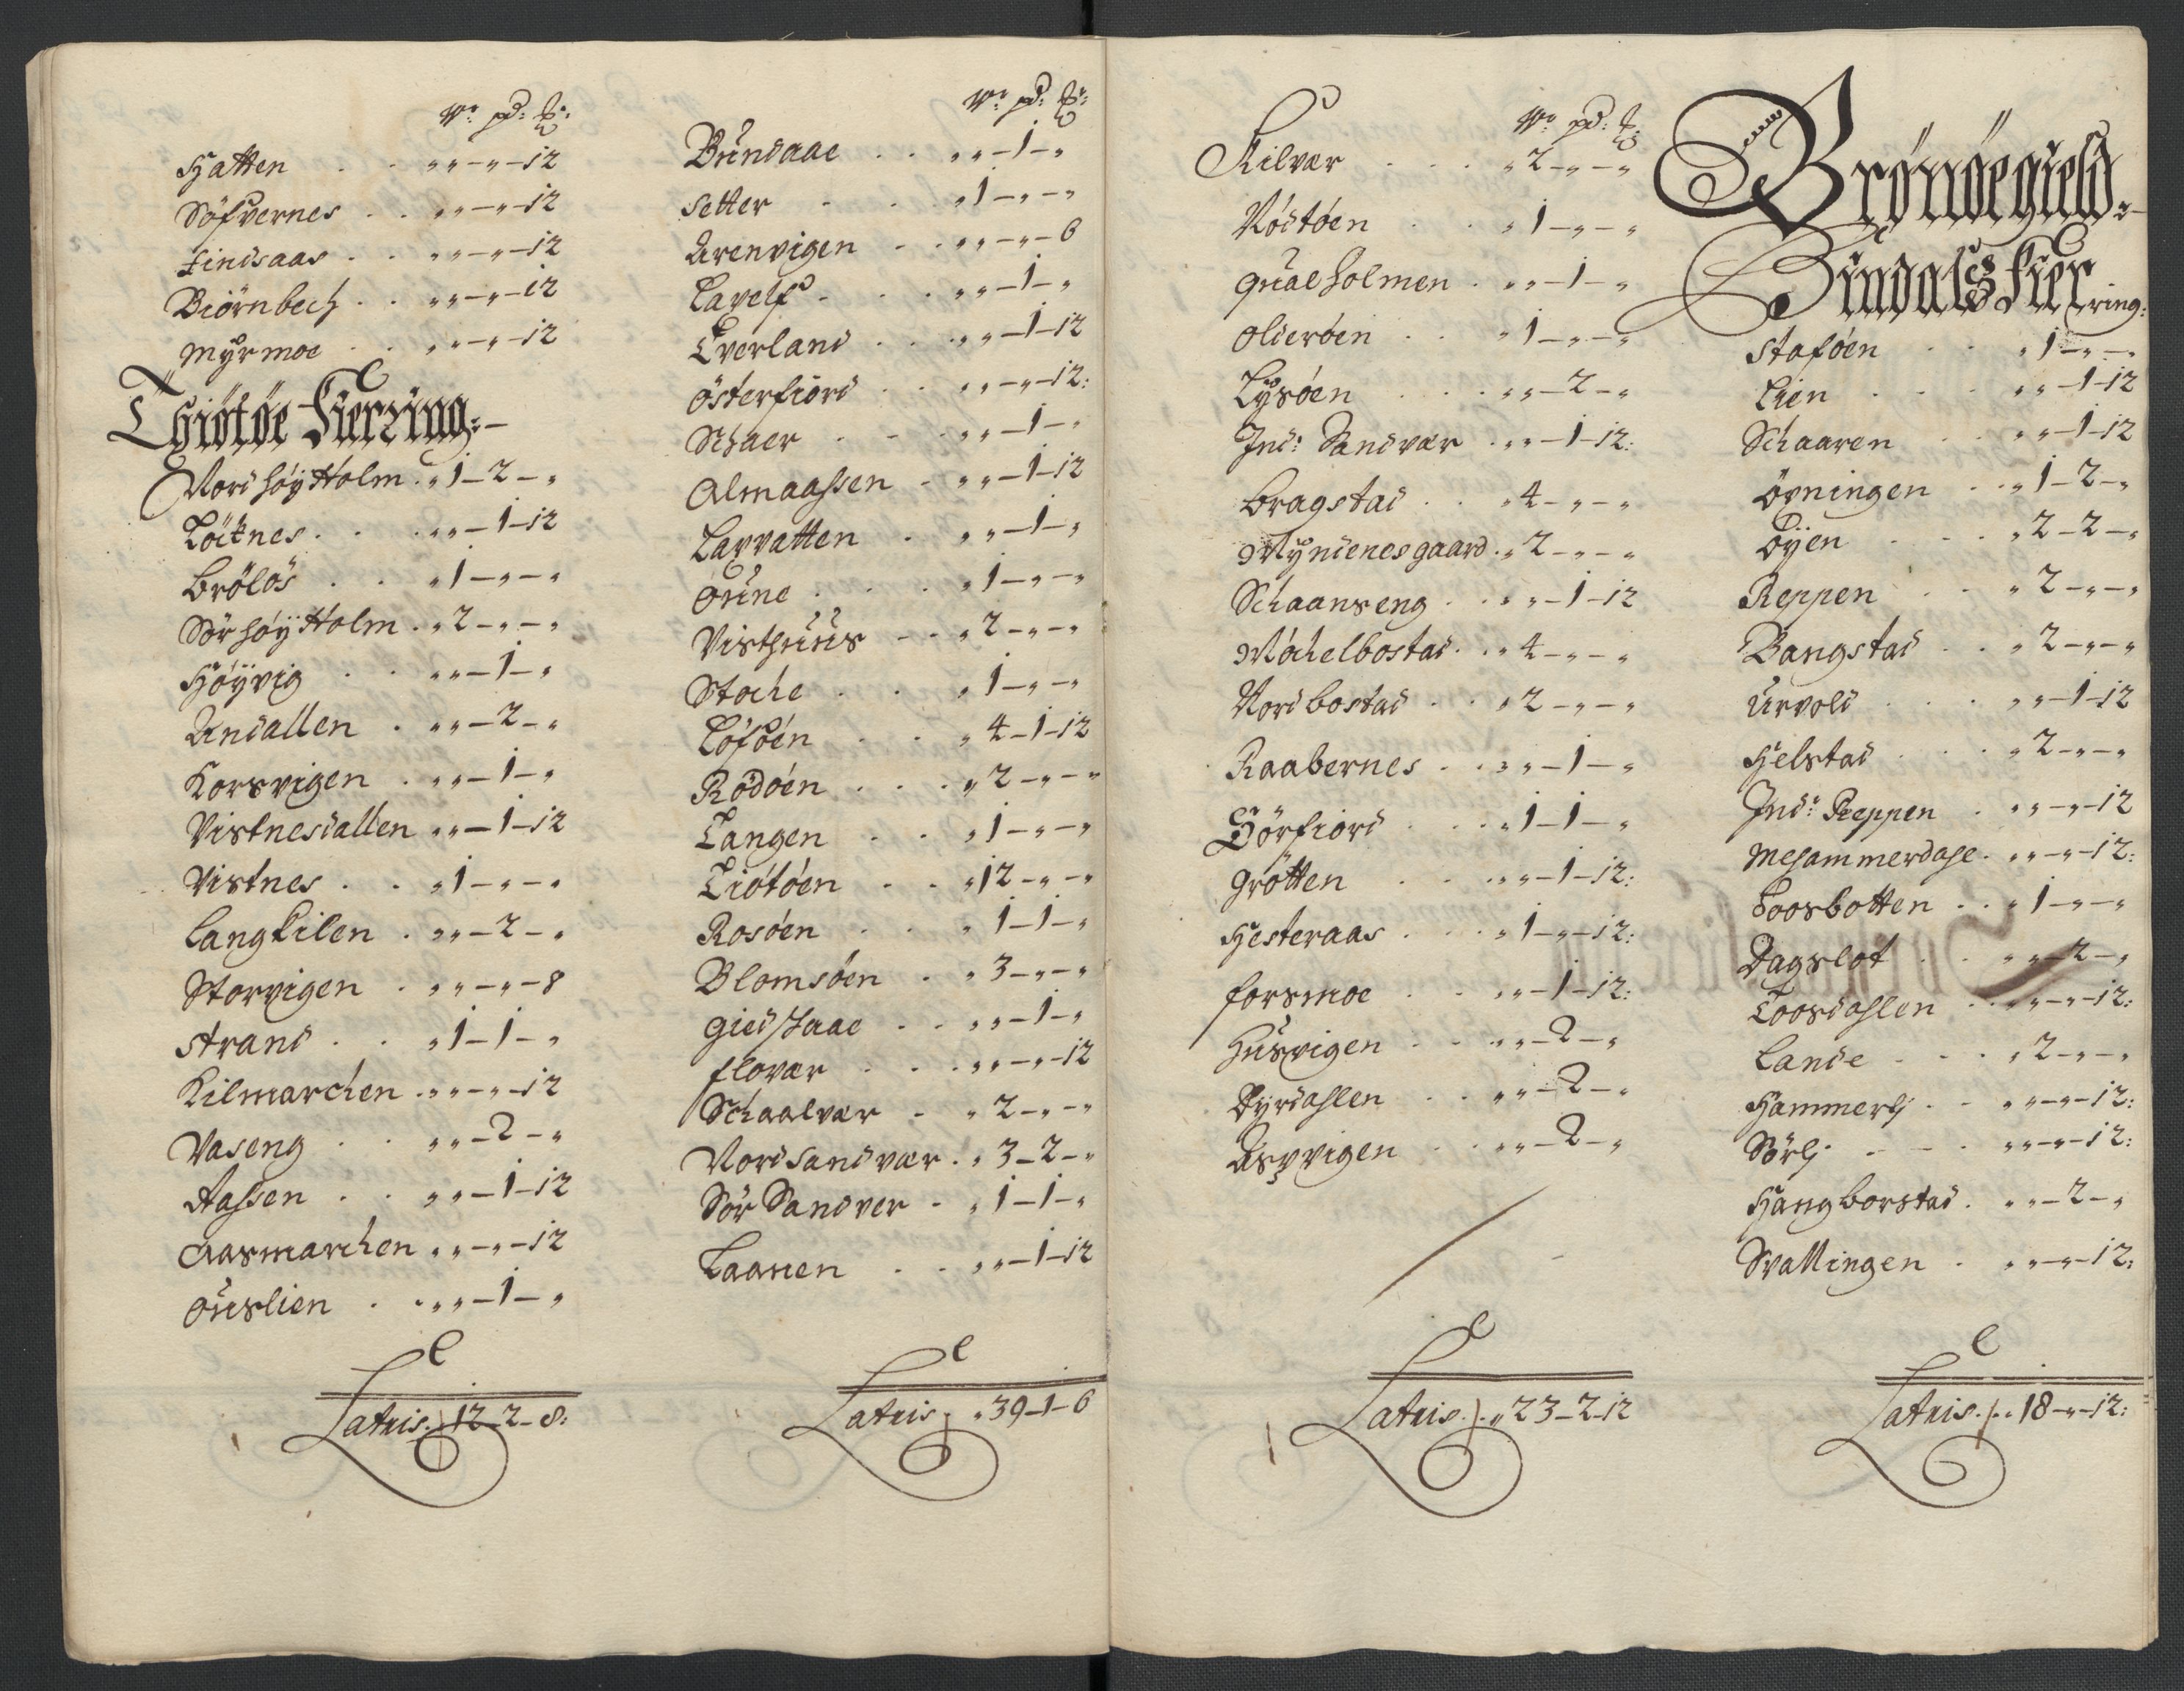 W: pd: ℔:
Hatten . . „ „ – „ – 12
Söfvernes . . „ „ – „ – 12
Findsaas . . „ „ – „ – 12
Biörnbech . . „ „ – „ – 12
Myrmoe . . „ „ – „ – 12
Thiötöe Fierring:
Nord höy Holm . „ 1 – 2 – „
Löcknes . . „ „ – 1 – 12
Brölös . . „ 1 – „ – „
Sör höy Holm . „ 2 – „ – „
Höyvig . . „ „ – 1 – „
Andallen . „ „ – 2 – „
Korsvigen . „ „ – 1 – „
Vistnesdallen „ „ – 1 – 12
Vistnes . . „ 1 – „ – „
Langkilen . „ „ – 2 – „
Storvigen . „ „ – „ – 8
Strand . . „ 1 – 1 – „
Kilmarchen . „ „ – „ – 12
Vaseng . . „ „ – 2 – „
Aassen . . „ „ – 1 – 12
Aasmarchen „ „ – „ – 12
Ouslien . . „ „ – 1 – „
Lateris . 12 – 2 – 8:
W: pd: ℔:
Bundaae . . „ „ – 1 – „
Setter . . „ 1 – „ – „
Arenvigen . . „ „ – „ – 6
Lavelf . . „ „ – 1 – „
Tverland . . „ „ – 1 – 12
Österfiord . . „ „ – „ – 12:
Schaer . . „ „ – 1 – „
Almaassen . „ „ – 1 – 12
Lavvatten . „ „ – 1 – „
Oune . . „ 1 – „ – „
Visthuus . . „ 2 – „ – „
Stoche . . „ 1 – „ – „
Töföen . . „ 4 – 1 – 12
Rödöen . . „ 2 – „ – „
Tangen . . „ 1 – „ – „
Tiötöen . . „ 12 – „ – „
Rosöen . . „ 1 – 1 – „
Blomsöen . „ 3 – „ – „
Giedskaae . . „ „ – 1 – „
Flovær . . „ „ – „ – 12
Schaalvær . „ 2 – „ – „
Nord Sandvær . „ 3 – 2 – „
Sör Sandver . „ 1 – 1 – „
Taanen . . „ „ – 1 – 12
Lateris . „ 39 – 1 – 6
W: pd: ℔:
Kilvær . . „ 2 – „ – „
Nödtöen . . „ 1 – „ – „
Qualholmen . „ „ – 1 – „
Olderöen . . „ 1 – „ – „
Lysöen . . „ „ – 2 – „
Ind: Sandvær . „ „ – 1 – 12:
Bragstad . . „ 4 – „ – „
Myndenesgaard . „ 2 – „ – „
Schaanseng . . „ „ – 1 – 12
Möchelbostad . „ 4 – „ – „
Nordbostad . . „ 2 – „ – „
Raabernes . . „ „ – 1 – „
Sörfiord . . „ 1 – 1 – „
Grötten . . „ „ – 1 – 12:
Hesteraas . . „ 1 – „ – 12:
Forsmoe . . „ „ – 1 – 12:
Husvigen . . „ „ – 2 – „
Dyrdahlen . . „ „ – 2 – „
Aspvigen . . „ „ – 2 – „
Lateris . „ 23 – 2 – 12
Brönöegield:
Bindals Fierring:
Staföen . . „ 1 – „ – „
Lien . . „ „ – 1 – 12
Schaaren . . „ „ – 1 – 12
Övningen . . „ 1 – 2 – „
Öyen . . „ 2 – 2 – „
Reppen . . „ 2 – „ – „
Bangstad . . „ 2 – „ – „
Urvold . . „ „ – 1 – 12
Helstad . . „ 2 – „ – „
Ind: Reppen . „ „ – „ – 12
Mehammerdahl . „ „ – „ – 12:
Toosbotten . . „ 1 – „ – „
Dagslot . . „ „ – 2 – „
Toosdahlen . . „ „ – „ – 12:
Lande . . „ 2 – „ – „
Hammerlj . . „ „ – „ – 12:
Sörlj . . „ „ – „ – 12:
Hangborstad . „ „ – 2 – „
Svallingen . „ „ – „ – 12:
Lateris . . 18 – „ – 12: